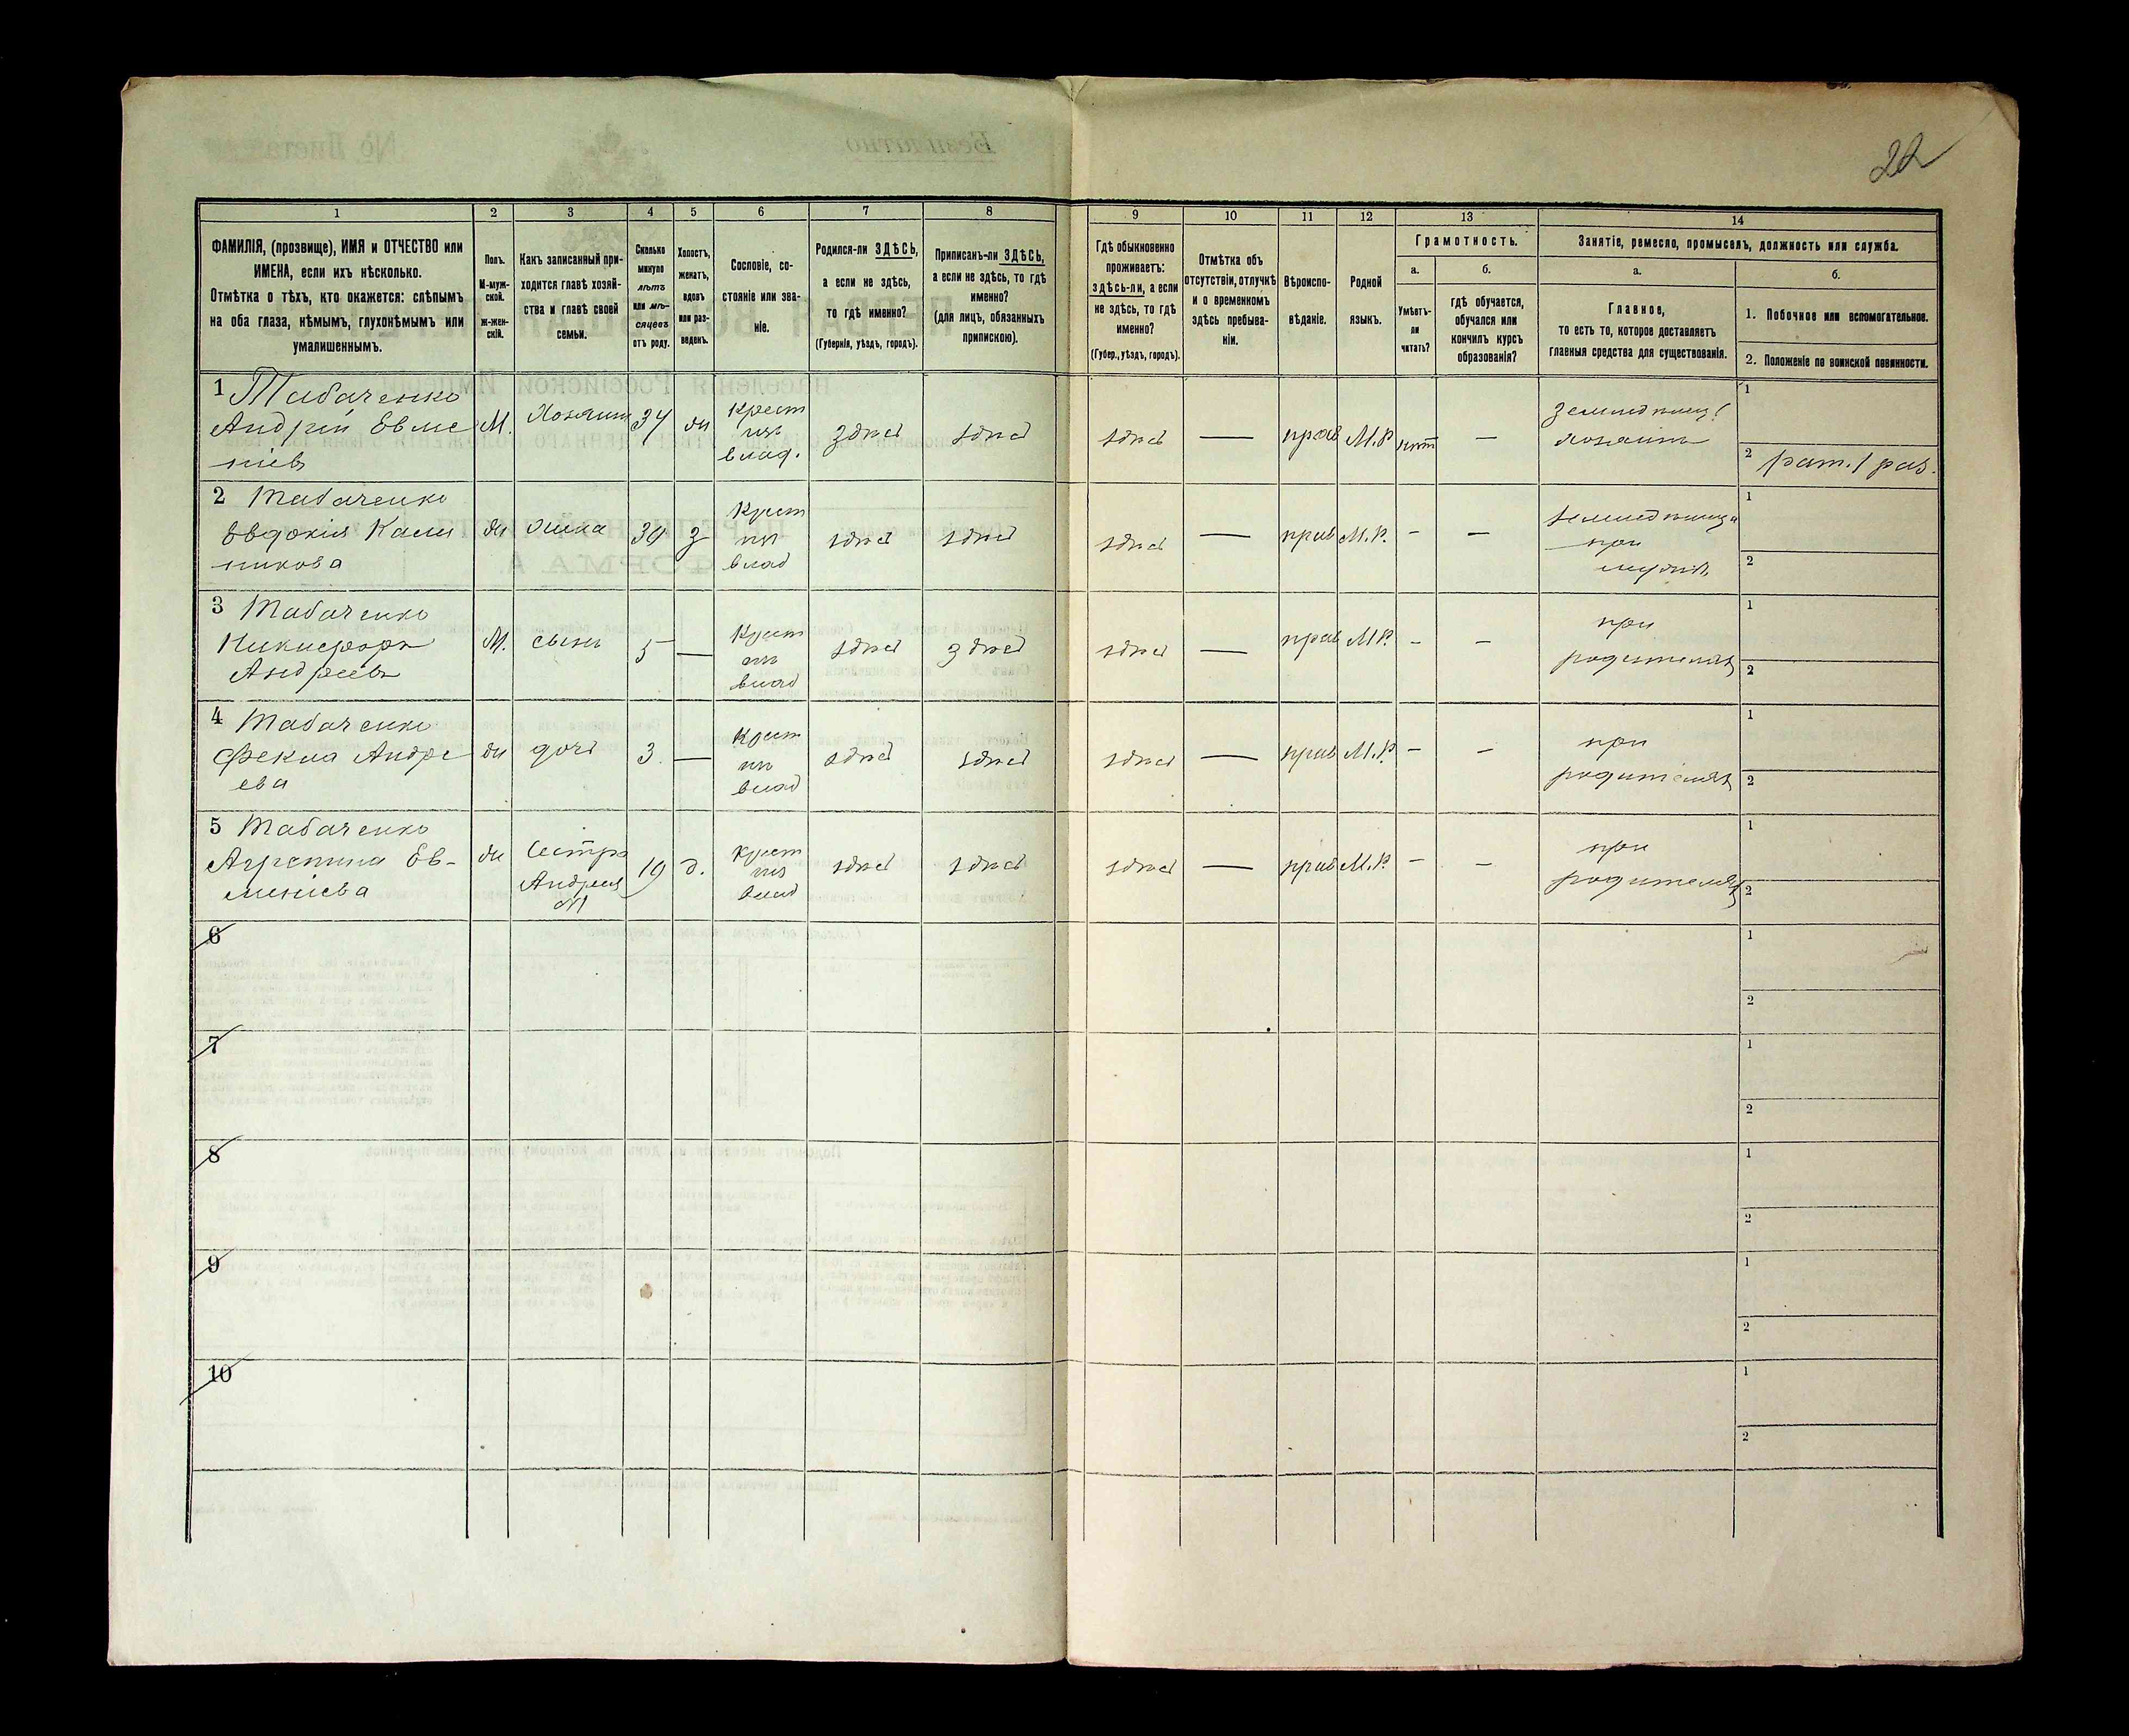 22
1 2 3 4 5 6 7 8 9 10 11 12 13 14
ФАМИЛІЯ, (прозвище), ИМЯ и ОТЧЕСТВО или
ИМЕНА, если ихъ нѣсколько.
Отмѣтка о тѣхъ, кто окажется: слѣпымъ
на оба глаза, нѣмымъ, глухонѣмымъ или
умалишеннымъ.
Полъ.
М-муж-
ской.
ж-жен-
скій.
Какъ записанный при-
ходится главѣ хозяй-
ства и главѣ своей
семьи.
Сколько
минуло
лѣтъ
или мѣ-
сяцевъ
отъ роду.
Холостъ,
женатъ,
вдовъ
или раз-
веденъ.
Сословіе, со-
стояніе или зва-
ніе.
Родился-ли ЗДѢСЬ,
а если не здѣсь,
то гдѣ именно?
(Губернія, уѣздъ, городъ).
Приписанъ-ли ЗДѢСЬ,
а если не здѣсь, то гдѣ
именно?
(для лицъ, обязанныхъ
припискою).
Гдѣ обыкновенно
проживаетъ:
здѣсь-ли, а если
не здѣсь, то гдѣ
именно?
(Губер., уѣздъ, городъ).
Отмѣтка объ
отсутствіи, отлучкѣ
и о временномъ
здѣсь пребыва-
ніи.
Вѣроиспо-
вѣданіе.
Родной
языкъ.
Грамотность.
а.
Умѣетъ-
ли
читать?
б.
гдѣ обучается,
обучался или
кончилъ курсъ
образованія?
Занятіе, ремесло, промыселъ, должность или служба.
а.
Главное,
то есть то, которое доставляетъ
главныя средства для существованія.
б.
1. Побочное или вспомогательное.
2. Положеніе по воинской повинности.
1 Табаченко
Андрій Евме
ніев
М.
Хозяинъ
34
ж
крест
изъ
влад.
здѣсь
здѣсь
здѣсь
—
прав
М.Р
нѣт
—
хозяинъ
1
2 рат. 1 раз.
2 Табаченко
Евдокія Калин
никова
ж
жена
30
з
Крест
из
влад
здѣсь
здѣсь
здѣсь
—
прав
М.Р.
-
—
при
мужѣ
1
2
3 Табаченко
Никифоръ
Андреевъ
М.
сынъ
5
—
Крест
из
влад
здѣсь
здѣсь
здѣсь
—
прав
М.Р.
-
-
при
родителях
1
2
4 Табаченко
Фекла Андре
ева
ж
дочь
3.
—
Крест
из
влад
здѣсь
здѣсь
здѣсь
—
прав
М.Р.
-
-
при
родителях
1
2
5 Табаченко
Агрепина Ев-
меніева
ж
Сестра
Андрея
№1
19
д.
крест
из
влад
здѣсь
здѣсь
здѣсь
—
прав
М.Р.
-
-
при
родителях
1
2
6
1
2
7
1
2
8
1
2
9
1
2
10
1
2